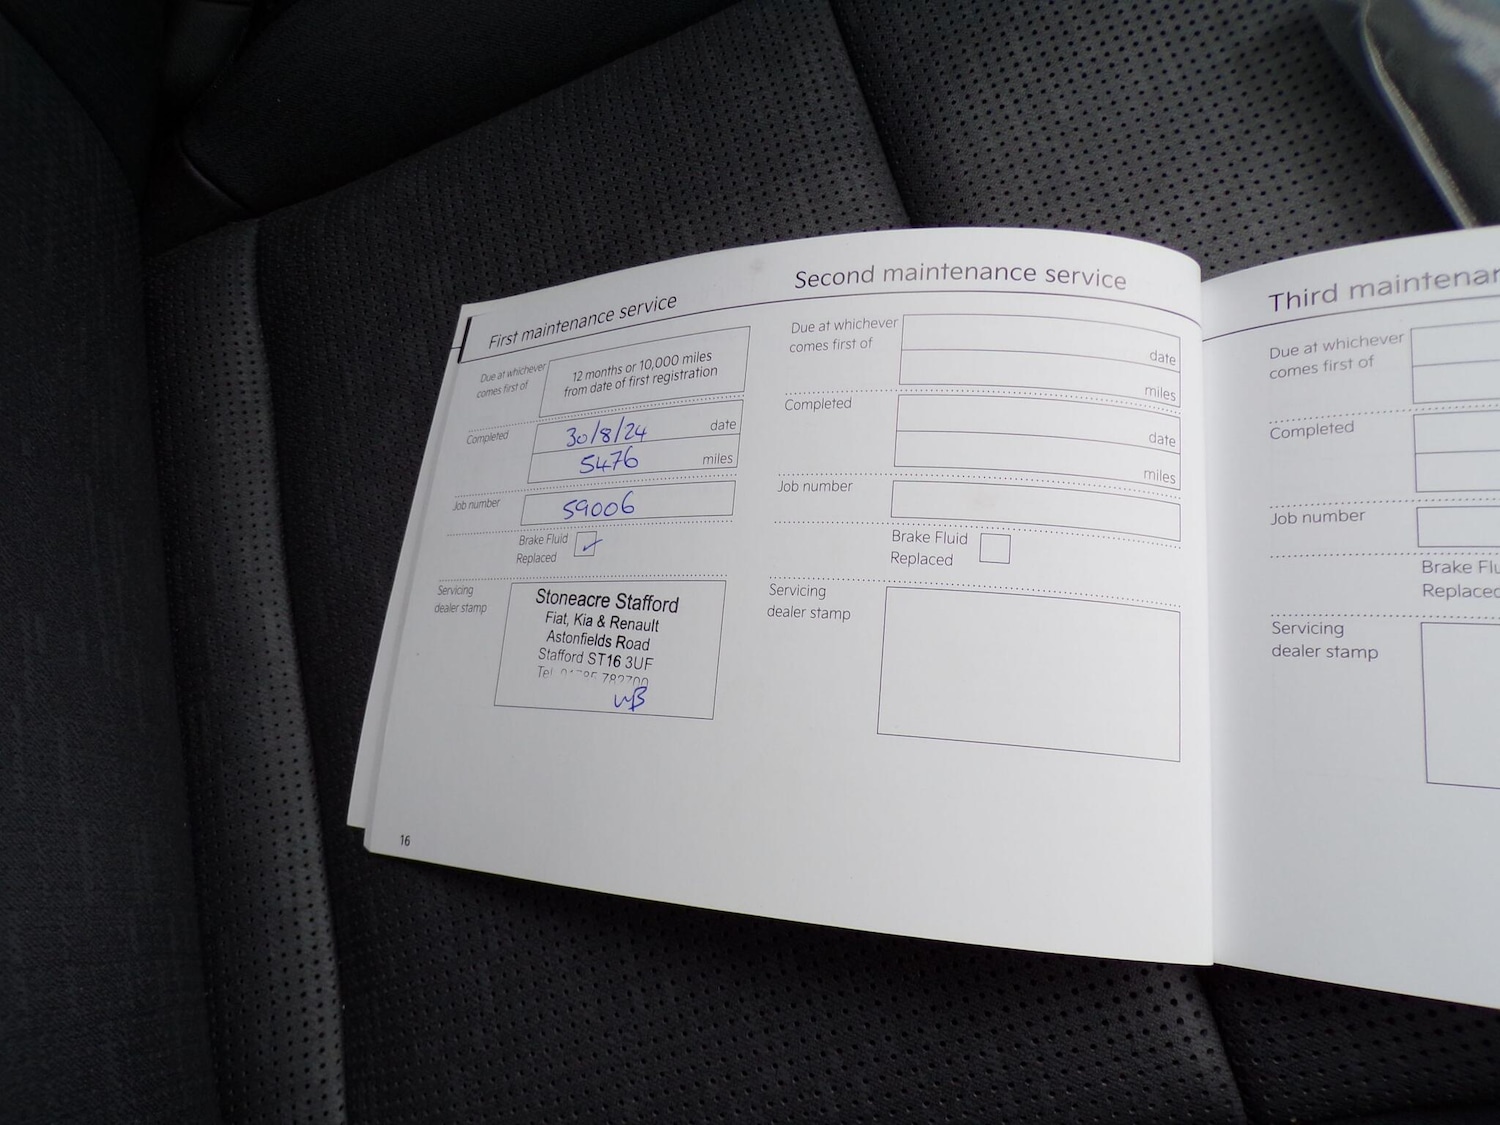 First maintenance service
Due at whichever
comes first of
12 months or 10,000 miles
from date of first registration
Completed
30/8/24 date
5476 miles
Job number
59006
Brake Fluid
Replaced
Servicing
dealer stamp
Stoneacre Stafford
Fiat, Kia & Renault
Astonfields Road
Stafford ST16 3UF
Tel 782700
16
Second maintenance service
Due at whichever
comes first of
date
miles
Completed
date
miles
Job number
Brake Fluid
Replaced
Servicing
dealer stamp
Third
Due at whichever
comes first of
Completed
Job number
Brake
Replaced
Servicing
dealer stamp